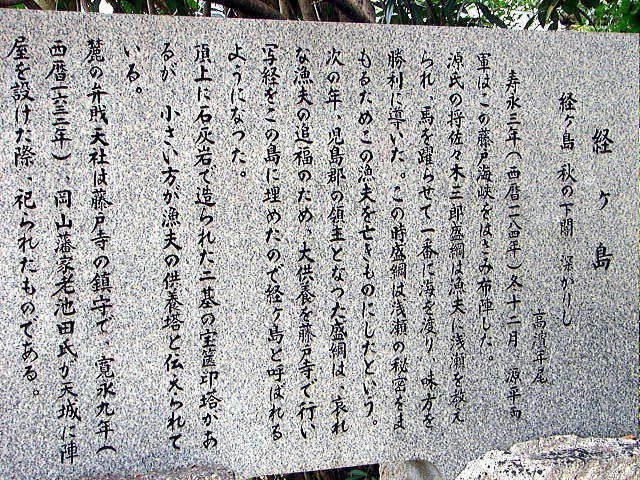 経ヶ島
経ヶ島 秋の下闇 深かりし
高濱年尾
寿永三年(西暦一一八四年)冬十二月 源平両
軍はこの藤戸海峡をはさみ布陣した。
源氏の将佐々木三郎盛綱は漁夫に浅瀬を教え
られ、馬を躍らせて一番に海を渡り、味方を
勝利に導いた。この時盛綱は浅瀬の秘密をま
もるためこの漁夫を亡きものにしたという。
次の年、児島郡の領主となった盛綱は、哀れ
な漁夫の追福のため、大供養を藤戸寺で行い
写経をこの島に埋めたので経ヶ島と呼ばれる
ようになった。
頂上に石灰岩で造られた二基の宝篋印塔があ
るが 小さい方が漁夫の供養塔と伝えられて
いる。
麓の弁財天社は藤戸寺の鎮守で、寛永九年(
西暦一六三二年)、岡山藩家老池田氏が天城に陣
屋を設けた際、祀られたものである。